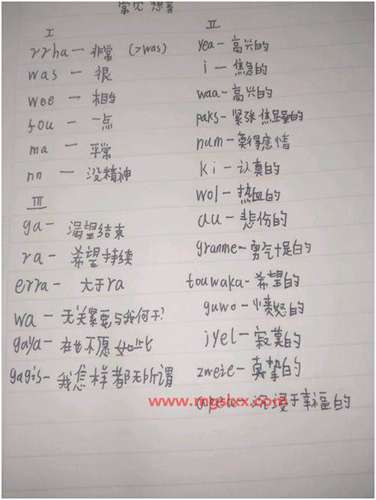 常见想音
I
rrha — 非常 (>was)
was — 很
wee — 相当
fou — 一点
ma — 平常
nn — 没精神
III
ga — 渴望结束
ra — 希望持续
erra — 大于ra
wa — 无关紧要与我何干?
gaya — 在也不愿如此
gagis — 我怎样都无所谓
II
yea — 高兴的
i — 焦急的
waa — 高兴的
paks — 紧张焦虑的
num — 莫得感情
ki — 认真的
wol — 热血的
au — 悲伤的
granme — 勇气十足的
touwaka — 希望的
guwo — 愤怒的
jyel — 寂寞的
zweie — 真挚的
沉浸于幸福的